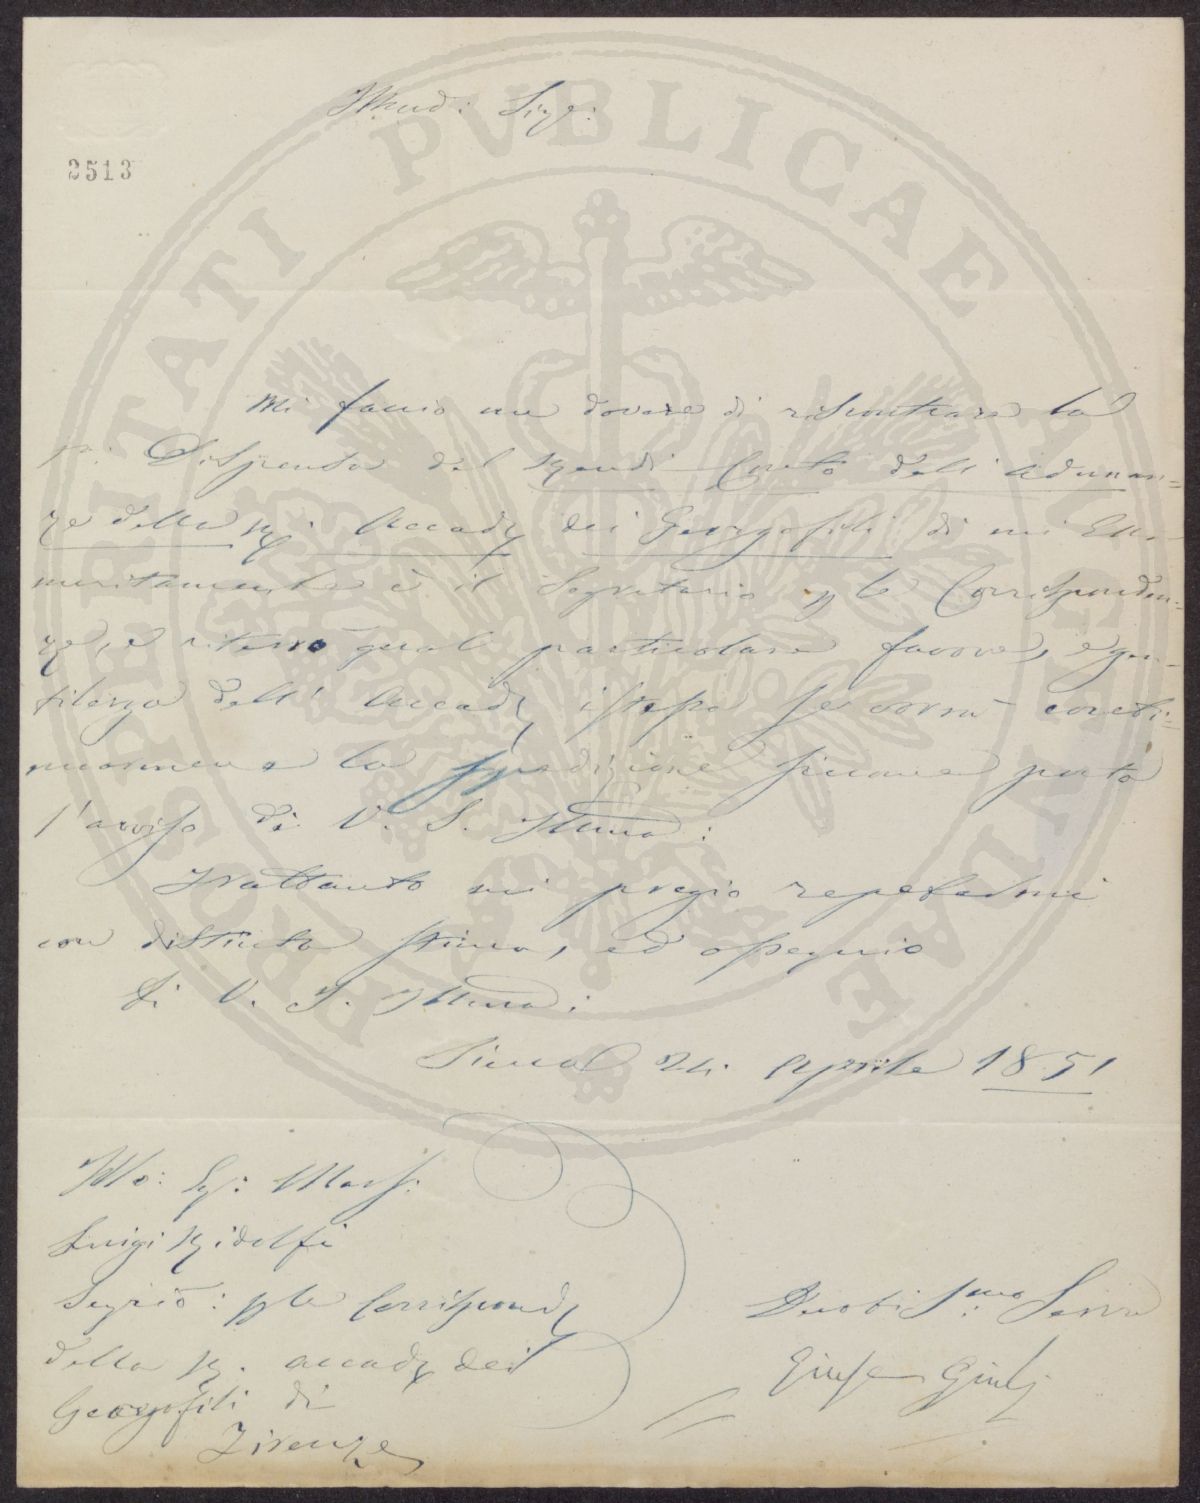 Illmo: Sigr:
2513
PROSPERITATI PVBLICAE AVGENDAE
Mi faccio un dovere di riscontrare la
1a: Dispensa del Rendi Conto dell'Adunan=
ze della R. Accada dei Georgofili di cui Ella
meritamente è il Segretario p le Corrisponden=
ze, e riterrò qual particolare favore, e gen=
tilezza dell'Accada istessa se vorrà conti=
nuarmene la spedizione giusta
l'avviso di V. S. Illma:
Frattanto mi pregio repetermi
con distinta stima, ed ossequio
Di V. S. Illma:
Siena 24. Aprile 1851
Illo: Sg: March:
Luigi Ridolfi
Segrio: p le Corrispond
della R. Accada dei
Georgofili di
Firenze
Devotismo Servo
Giuse Giulj